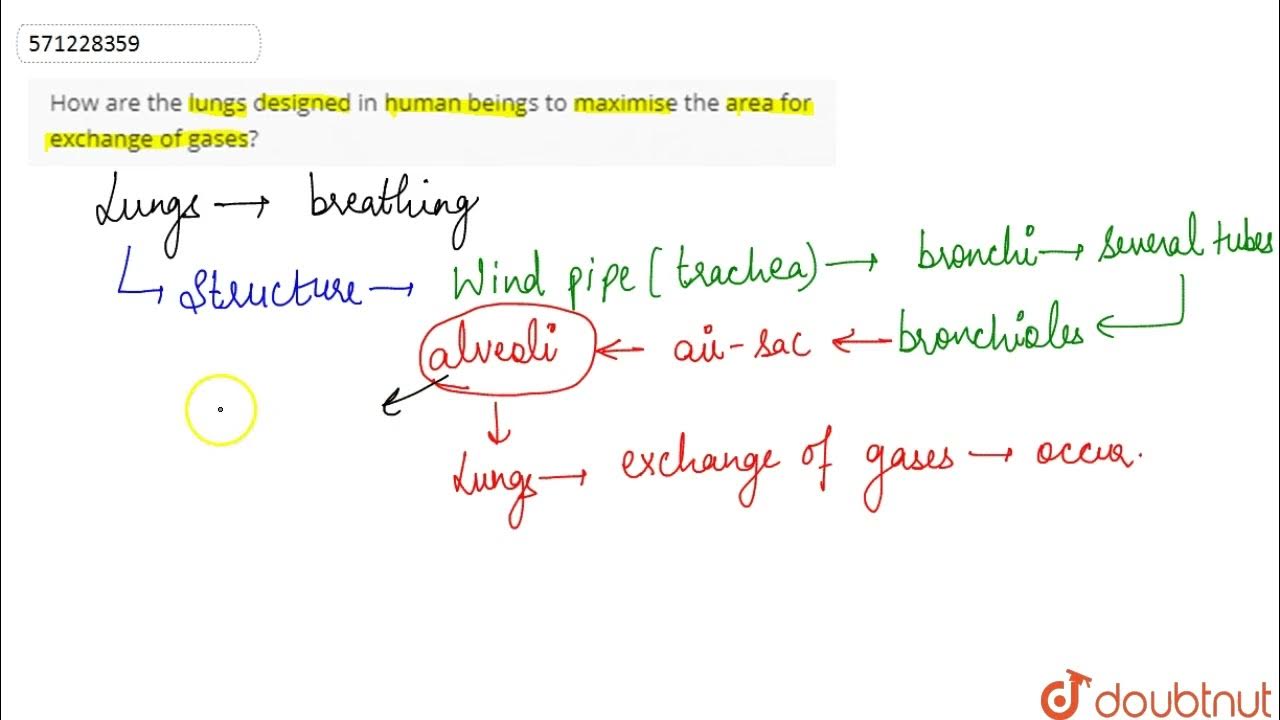 571228359
How are the lungs designed in human beings to maximise the area for
exchange of gases?
Lungs → breathing
↳ Structure → Wind pipe (trachea) → bronchi → several tubes
alveoli ← air-sac ← bronchioles
Lungs → exchange of gases → occur.
doubtnut